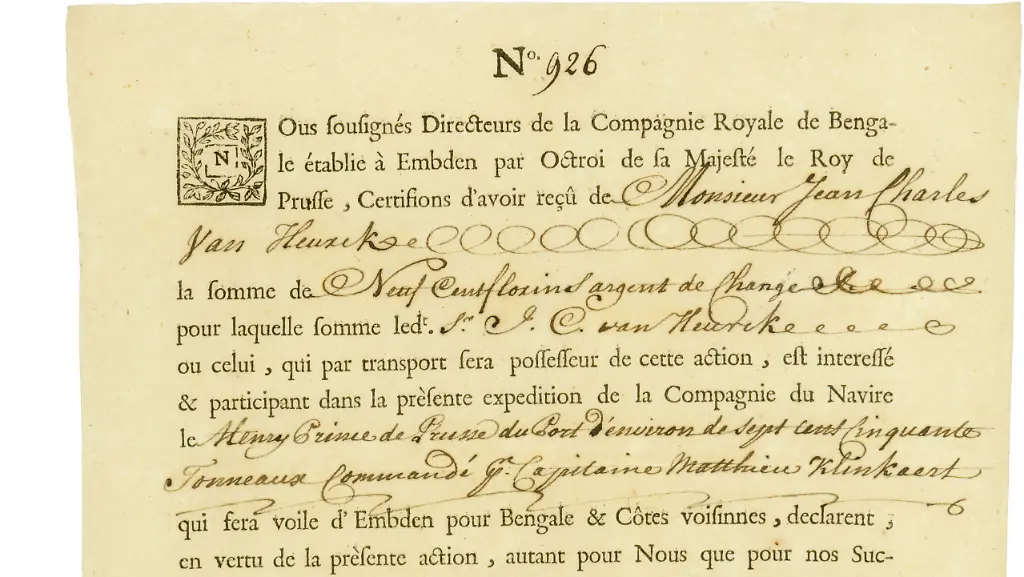 No. 926
NOus ſouſignés Directeurs de la Compagnie Royale de Benga-
le établie à Embden par Octroi de ſa Majeſté le Roy de
Pruſſe , Certifions d'avoir reçû de Monsieur Jean Charles
Van Heurck
la ſomme de Neuf Cent florins argent de Change
pour laquelle ſomme ledt. Sr. J. C. van Heurck
ou celui , qui par transport ſera poſſeſſeur de cette action , eſt intereſſé
& participant dans la prèſente expedition de la Compagnie du Navire
le Henry Prince de Prusse du Port d'environ de sept cent Cinquante
Tonneaux Commandé pr. Capitaine Matthieu Klinkaert
qui fera voile d'Embden pour Bengale & Côtes voiſinnes , declarent ,
en vertu de la prèſente action , autant pour Nous que pour nos Suc-